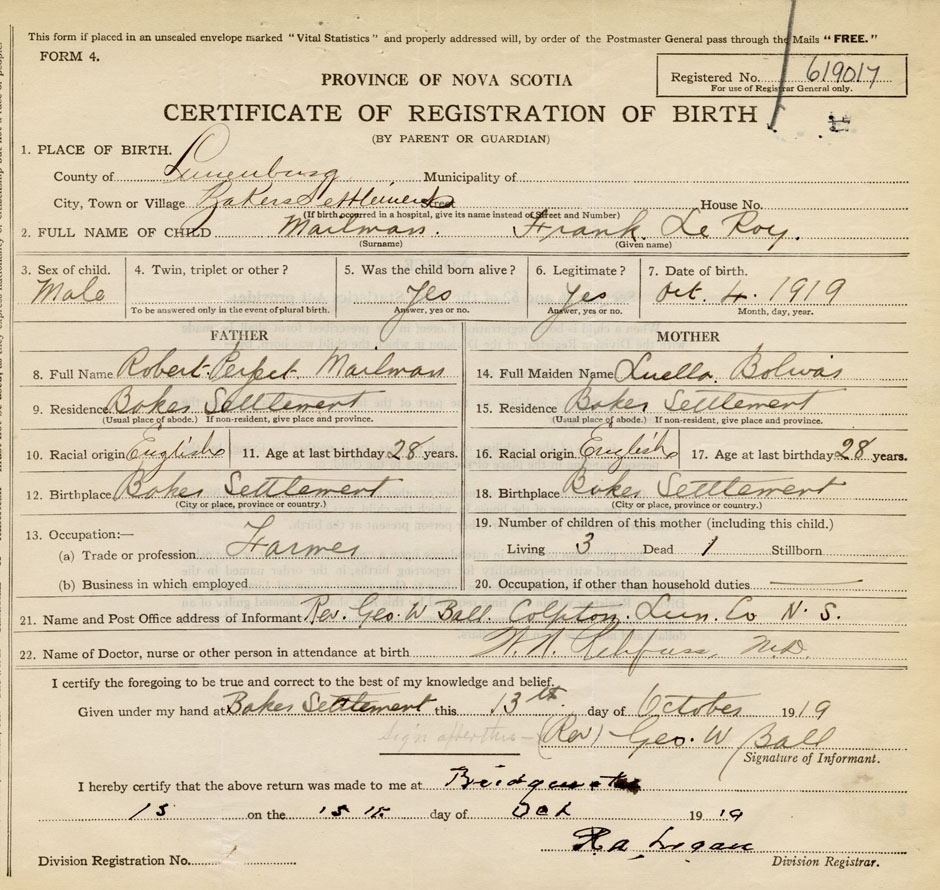 This form if placed in an unsealed envelope marked "Vital Statistics" and properly addressed will, by order of the Postmaster General pass through the Mails "FREE."
FORM 4.
PROVINCE OF NOVA SCOTIA
Registered No. 619017
For use of Registrar General only.
CERTIFICATE OF REGISTRATION OF BIRTH
(BY PARENT OR GUARDIAN)
1. PLACE OF BIRTH.
County of Lunenburg Municipality of
City, Town or Village Bakers Settlement Street House No.
(If birth occurred in a hospital, give its name instead of Street and Number)
2. FULL NAME OF CHILD Mailman. Frank Le Roy.
(Surname) (Given name)
3. Sex of child. 4. Twin, triplet or other? 5. Was the child born alive? 6. Legitimate? 7. Date of birth.
Male Yes Yes Oct. 4. 1919
To be answered only in the event of plural birth. Answer, yes or no. Answer, yes or no. Month, day, year.
FATHER MOTHER
8. Full Name Robert Mailman 14. Full Maiden Name Luella Bolivar
9. Residence Baker Settlement 15. Residence Baker Settlement
(Usual place of abode.) If non-resident, give place and province. (Usual place of abode.) If non-resident, give place and province.
10. Racial origin English 11. Age at last birthday 28 years. 16. Racial origin English 17. Age at last birthday 28 years.
12. Birthplace Baker Settlement 18. Birthplace Baker Settlement
(City or place, province or country.) (City or place, province or country.)
13. Occupation:— 19. Number of children of this mother (including this child.)
(a) Trade or profession Farmer Living 3 Dead 1 Stillborn
(b) Business in which employed 20. Occupation, if other than household duties
21. Name and Post Office address of Informant Rev. Geo. W Ball. Colpton. Lun. Co N. S.
22. Name of Doctor, nurse or other person in attendance at birth M.D.
I certify the foregoing to be true and correct to the best of my knowledge and belief.
Given under my hand at Baker Settlement this 13th day of October 1919
Sign after this – (Rev) Geo. W Ball
Signature of Informant.
I hereby certify that the above return was made to me at Bridgewater
15 on the 15th day of Oct 1919
R. A. Logan
Division Registration No. Division Registrar.